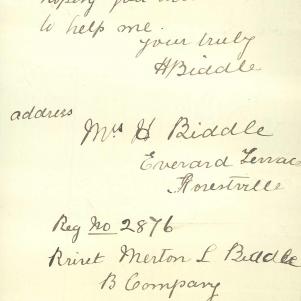 hoping you
to help me.
your truly
H Biddle
address
Mrs H Biddle
Everard Terrac
Florestville
Reg No 2876
Privet Merton L Biddle
B Company